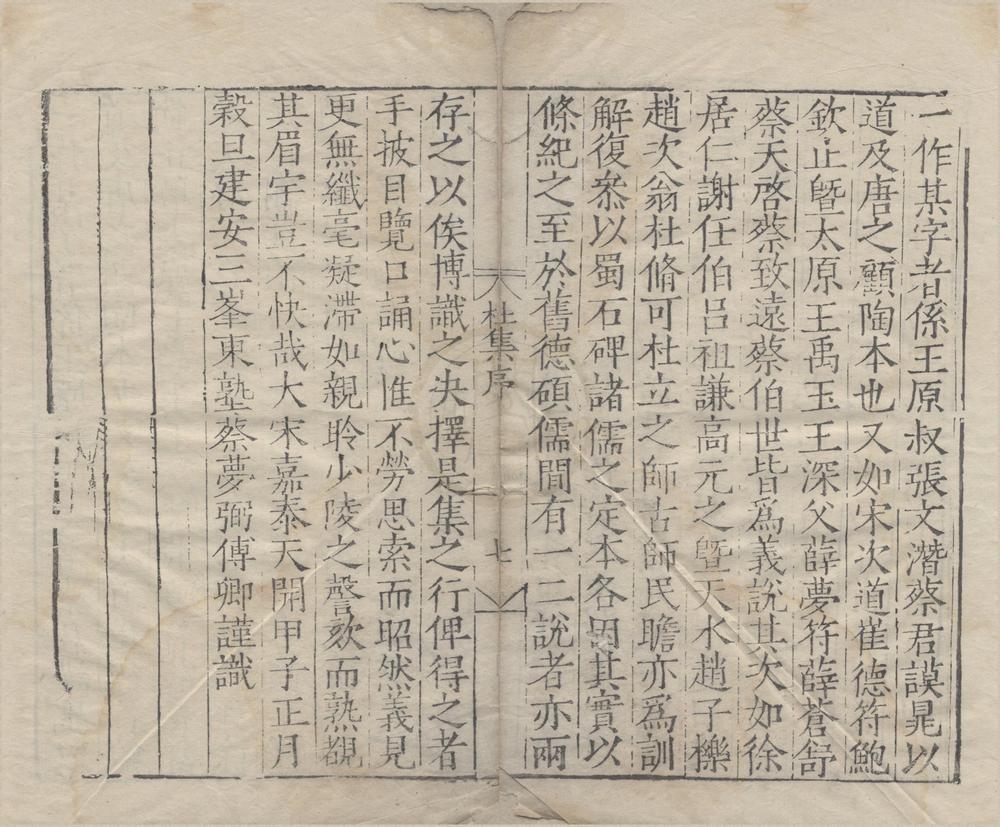 一作某字者係王原叔張文潛蔡君謨晁以
道及唐之顧陶本也又如宋次道崔德符鮑
欽止曁太原王禹玉王深父薛夢符薛蒼舒
蔡天啓蔡致遠蔡伯世皆爲義說其次如徐
居仁謝任伯呂祖謙高元之曁天水趙子櫟
趙次翁杜脩可杜立之師古師民瞻亦爲訓
解復叅以蜀石碑諸儒之定本各因其實以
條紀之至於舊德碩儒間有一二說者亦兩
杜集序
七
存之以俟博識之决擇是集之行俾得之者
手披目覽口誦心惟不勞思索而昭然義見
更無纖毫凝滯如親聆少陵之謦欬而熟覩
其眉宇豈不快哉大宋嘉泰天開甲子正月
穀旦建安三峯東塾蔡夢弼傅卿謹識